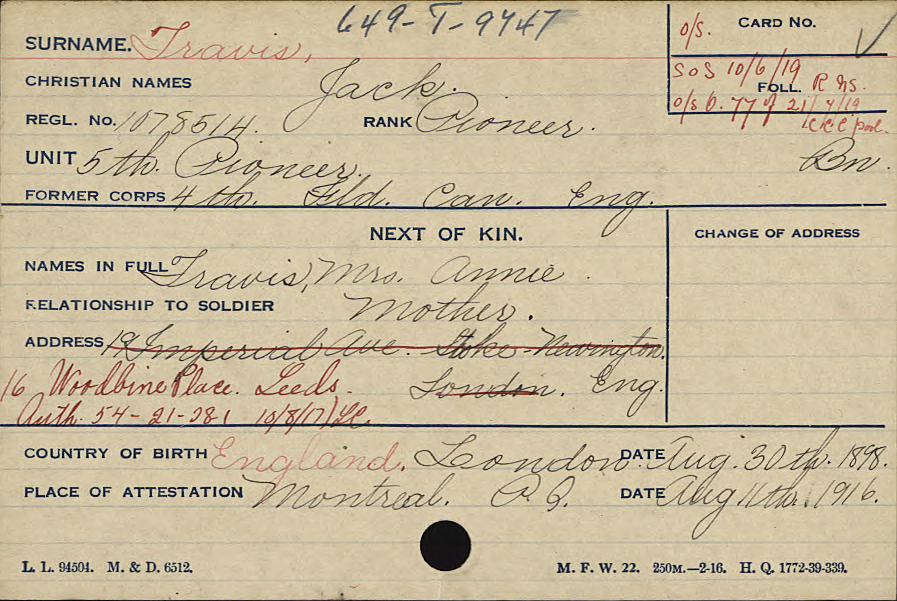 649-T-9747
SURNAME. Travis,
CARD No.
O/S.
CHRISTIAN NAMES Jack.
SOS 10/6/19
FOLL. R
O/S 21/4/19
REGL. No. 1078514. RANK Pioneer.
UNIT 5th. Pioneer. Bn.
FORMER CORPS 4th. Fld. Can. Eng.
NEXT OF KIN.
CHANGE OF ADDRESS
NAMES IN FULL Travis, Mrs. Annie.
RELATIONSHIP TO SOLDIER Mother.
ADDRESS 19 Imperial Ave. Stoke-Newington.
16 Woodbine Place. Leeds. London. Eng.
Auth. 54-21-281 10/8/17)
COUNTRY OF BIRTH England. London. DATE Aug. 30th. 1898.
PLACE OF ATTESTATION Montreal. P.Q. DATE Aug. 11th. 1916.
L. L. 94504. M. & D. 6512.
M. F. W. 22. 250M.—2-16. H. Q. 1772-39-339.